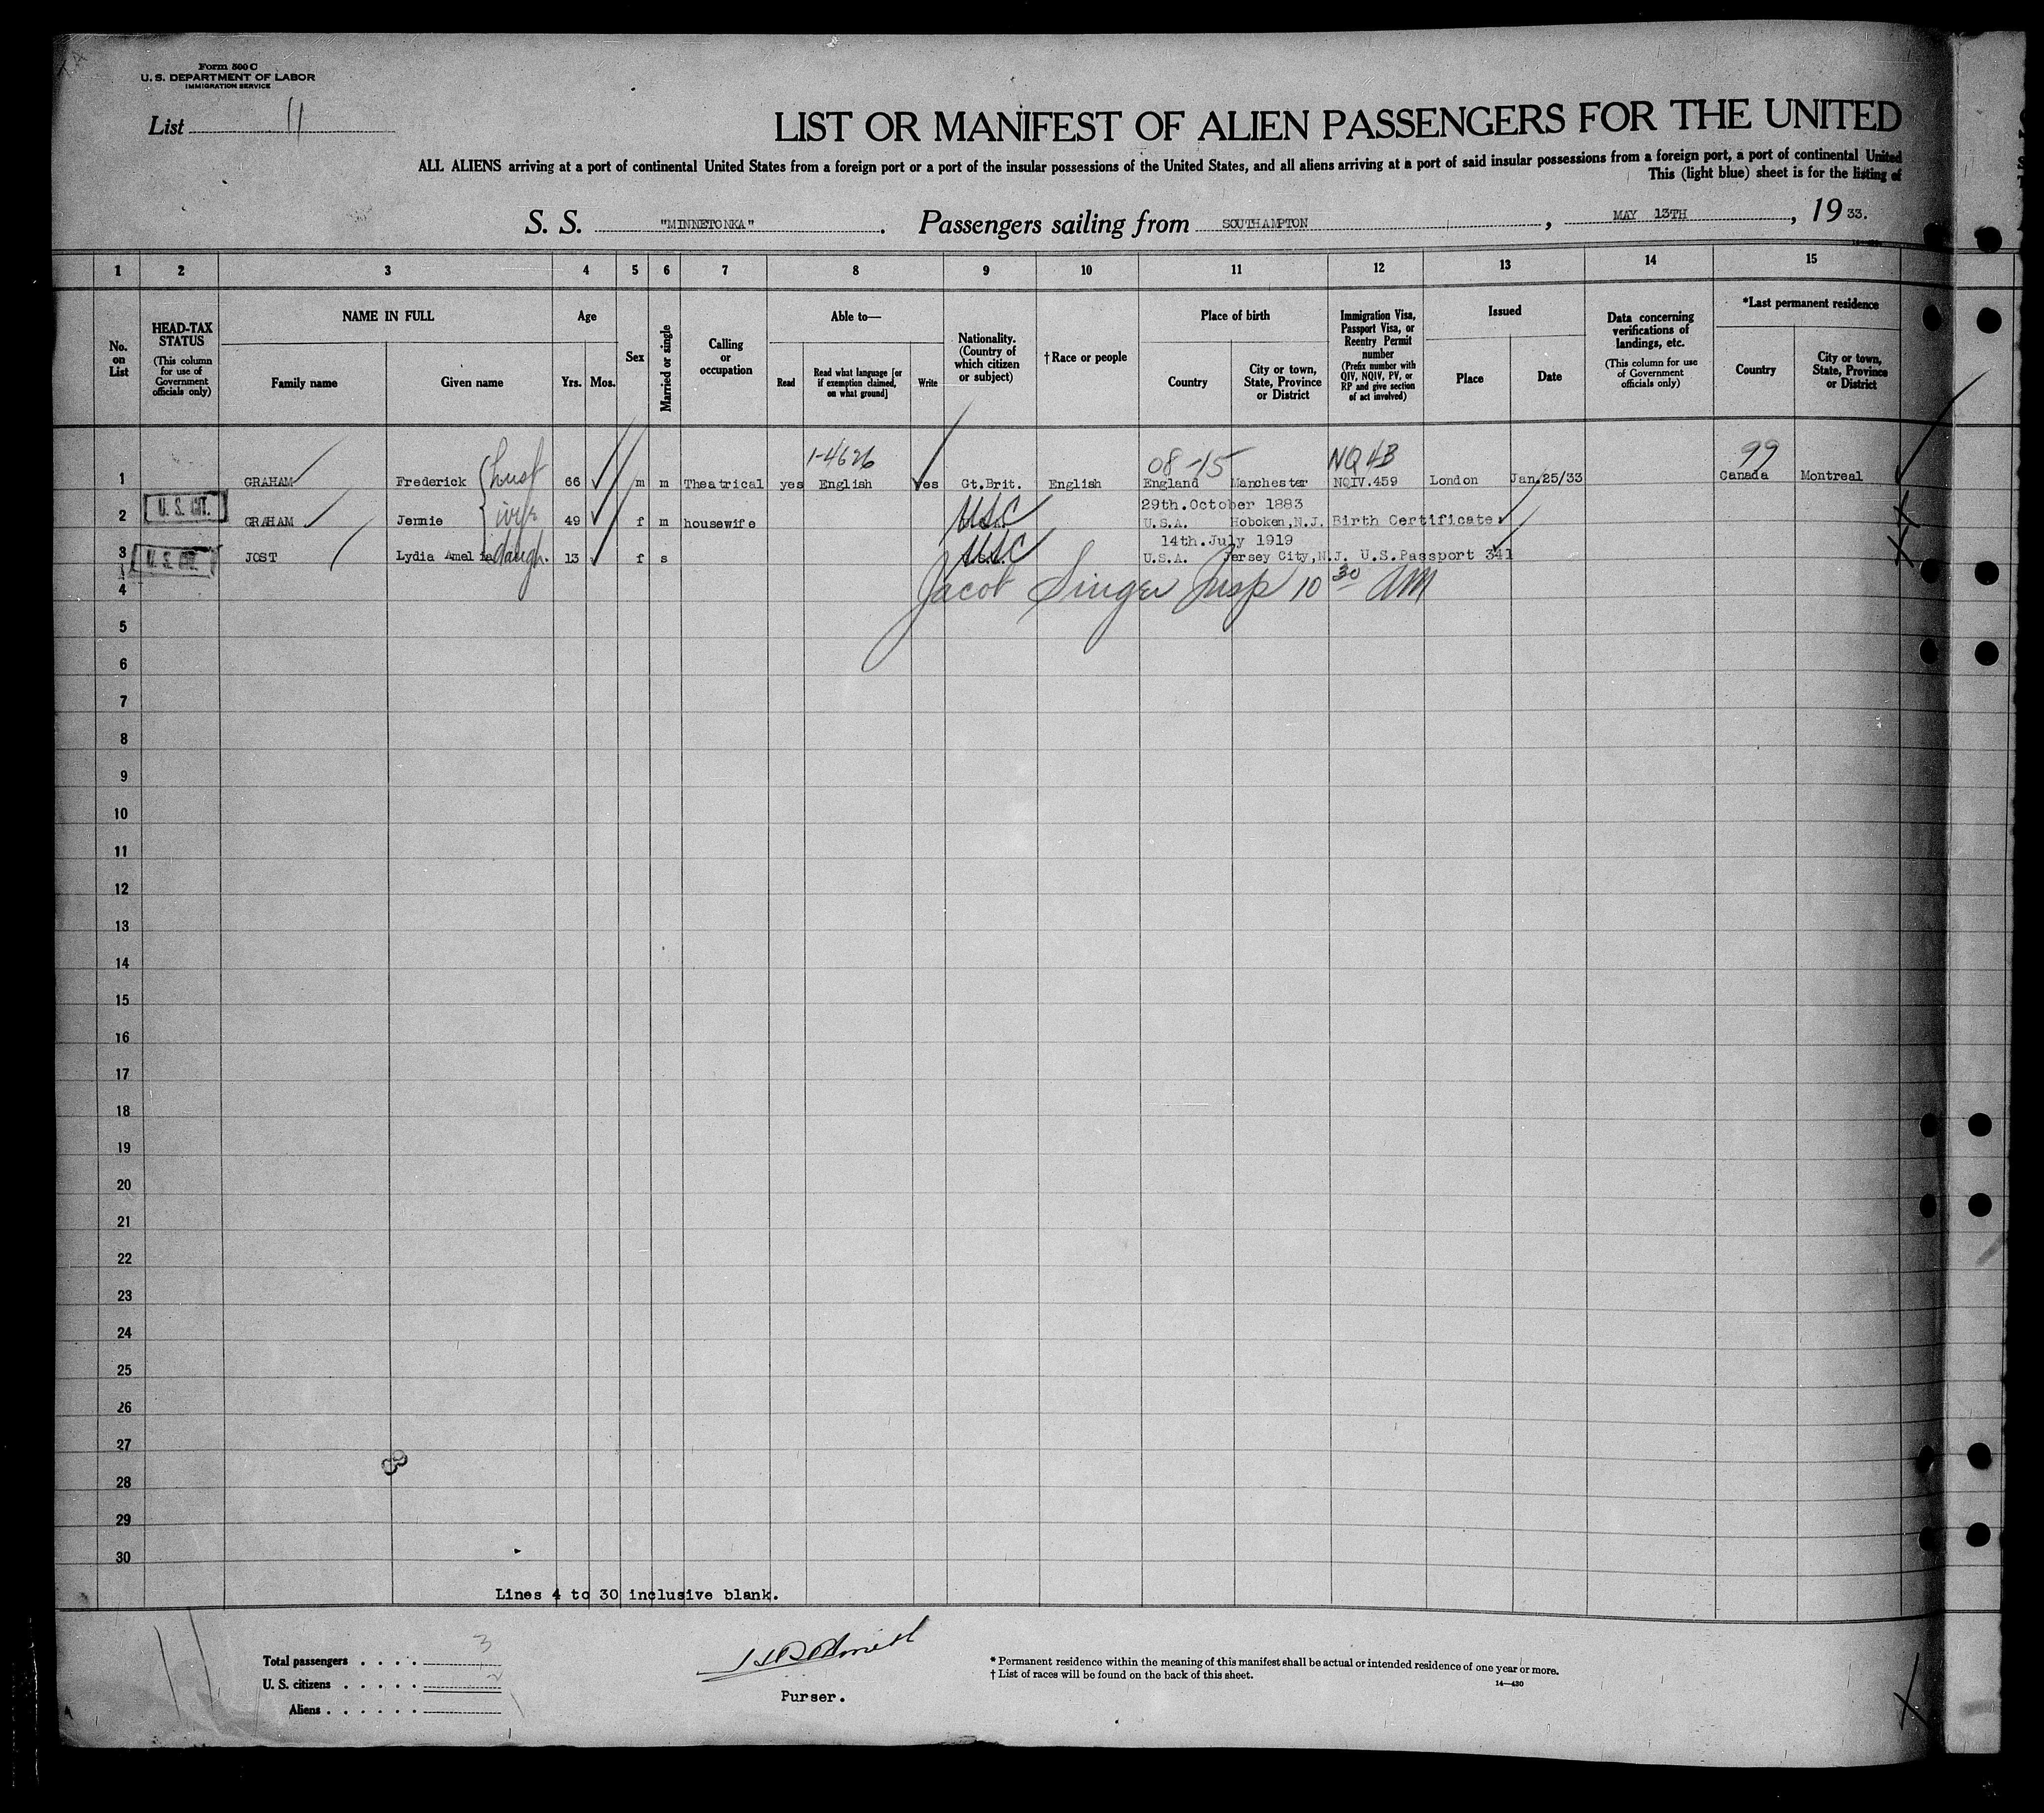 Form 500 C
U. S. DEPARTMENT OF LABOR
IMMIGRATION SERVICE
List 11
LIST OR MANIFEST OF ALIEN PASSENGERS FOR THE UNITED
ALL ALIENS arriving at a port of continental United States from a foreign port or a port of the insular possessions of the United States, and all aliens arriving at a port of said insular possessions from a foreign port, a port of continental United
This (light blue) sheet is for the listing of
S. S. "MINNETONKA". Passengers sailing from SOUTHAMPTON, MAY 13TH, 1933.
1 2 3 4 5 6 7 8 9 10 11 12 13 14 15
No. on List
HEAD-TAX STATUS
(This column for use of Government officials only)
NAME IN FULL
Family name Given name
Age
Yrs. Mos.
Sex
Married or single
Calling or occupation
Able to—
Read
Read what language [or if exemption claimed, on what ground]
Write
Nationality. (Country of which citizen or subject)
† Race or people
Place of birth
Country
City or town, State, Province or District
Immigration Visa, Passport Visa, or Reentry Permit number
(Prefix number with QIV, NQIV, PV, or RP and give section of act involved)
Issued
Place Date
Data concerning verifications of landings, etc.
(This column for use of Government officials only)
*Last permanent residence
Country
City or town, State, Province or District
1-4626 08-15 NQ 4B 99
1 GRAHAM Frederick husb 66 m m Theatrical yes English Yes Gt.Brit. English England Manchester NQIV.459 London Jan.25/33 Canada Montreal
29th.October 1883
2 U. S. CIT. GRAHAM Jennie wife 49 f m housewife USC U.S.A. Hoboken,N.J. Birth Certificate.
14th.July 1919
3 U. S. CIT. JOST Lydia Amelia daugh. 13 f s USC U.S.A. Jersey City,N.J. U.S.Passport 341
4 Jacob Singer Insp 10 30 AM
5
6
7
8
9
10
11
12
13
14
15
16
17
18
19
20
21
22
23
24
25
26
27
28
29
30
Lines 4 to 30 inclusive blank.
Total passengers . . . . 3
U. S. citizens . . . . . 2
Aliens . . . . . .
Purser.
* Permanent residence within the meaning of this manifest shall be actual or intended residence of one year or more.
† List of races will be found on the back of this sheet.
14—430